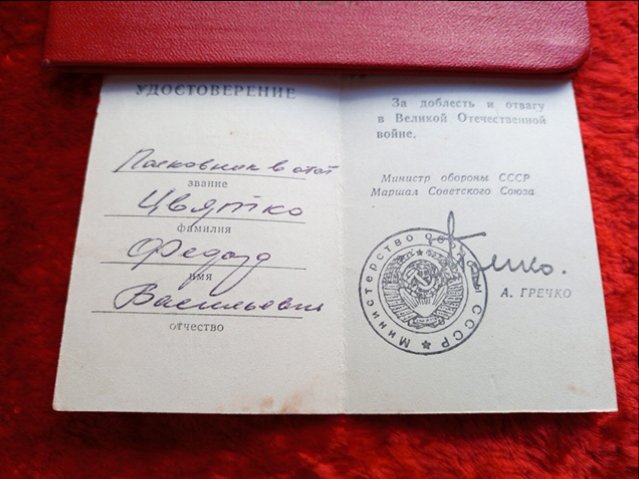 УДОСТОВЕРЕНИЕ
Полковник в отст
звание
Цвятко
фамилия
Федор
имя
Васильевич
отчество
За доблесть и отвагу
в Великой Отечественной
войне.
Министр обороны СССР
Маршал Советского Союза
Министерство обороны СССР
А. ГРЕЧКО